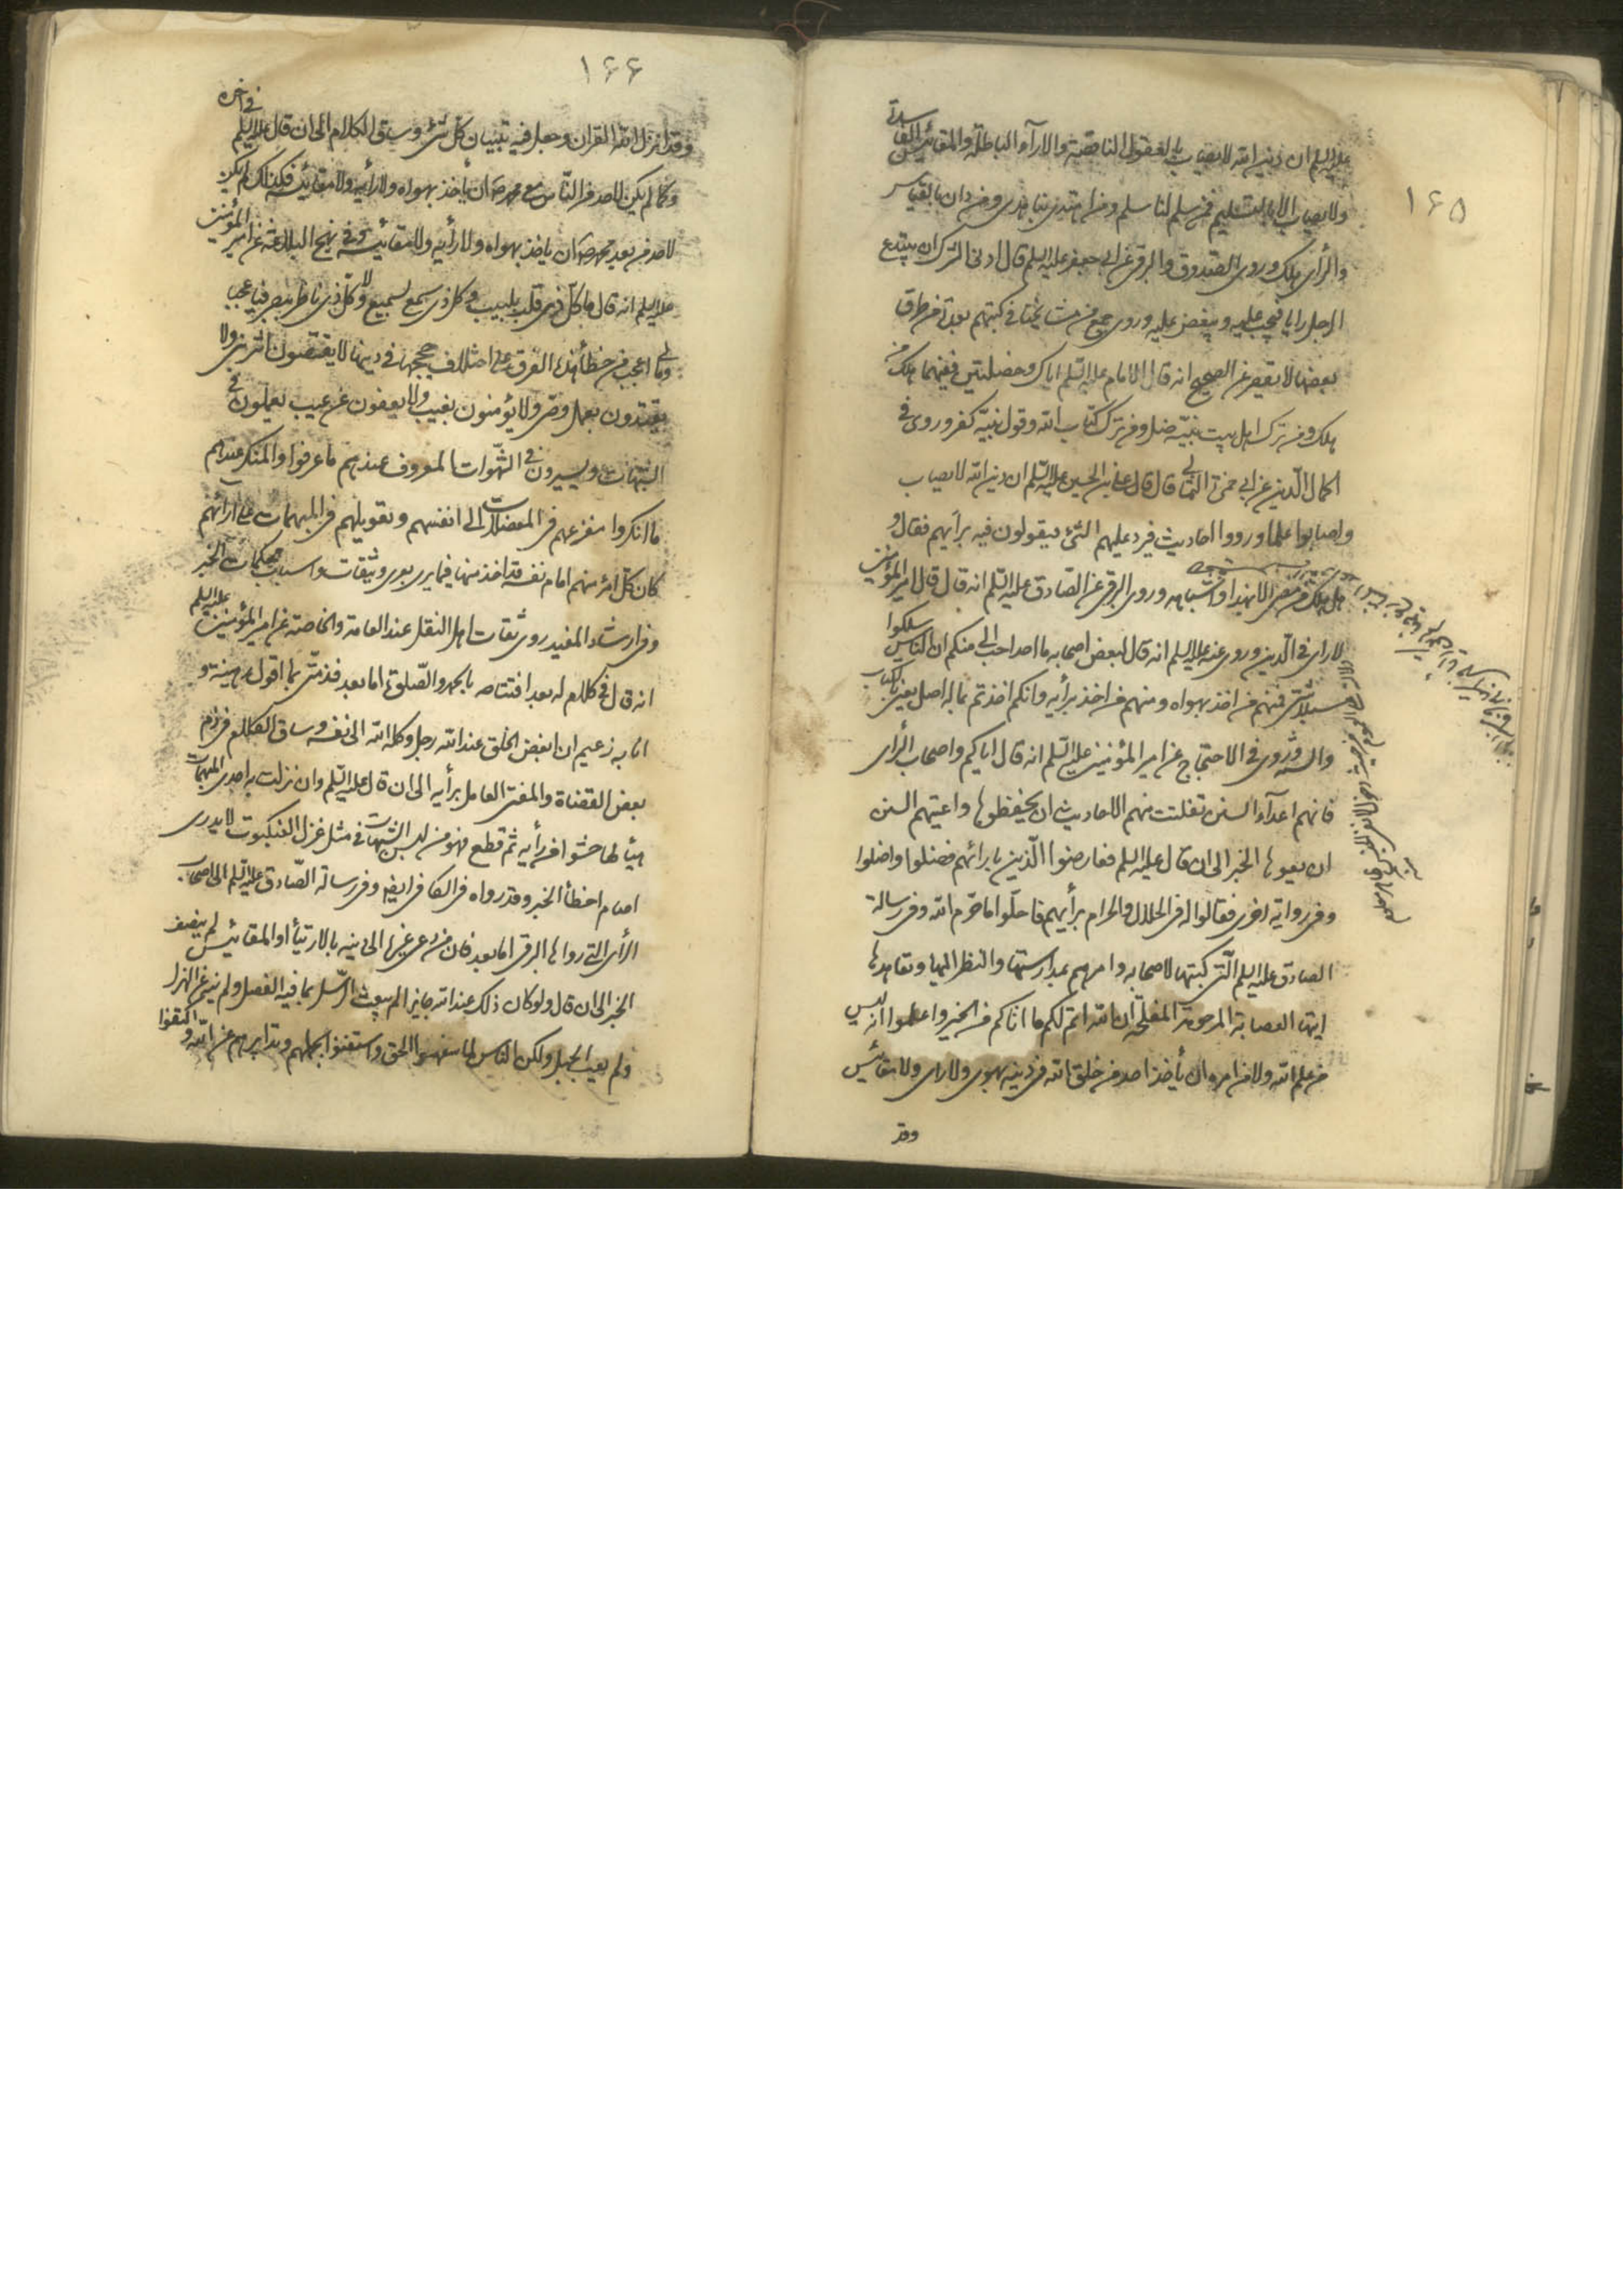 ١٦٥
عليه السلم ان دين الله لا يصاب بالعقول الناقصة والاراء الباطلة والمقائيس الفاسدة
ولا يصاب الا بالتسليم فمن سلم لنا سلم ومن اهتدى بنا هدى ومن دان بالقياس
والرأى هلك وروى الصدوق والبرقى عن ابى جعفر عليه السلم قال ادنى الشرك ان يبتدع
الرجل رايا فيحب عليه ويبغض عليه وروى جمع من مشايخنا فى كتبهم بعدة من طرق
بعضها لا يقصر عن الصحيح انه قال الامام عليه السلم اياك وخصلتين ففيهما هلك من
هلك ومن ترك اهل بيت نبيه ضل ومن ترك كتاب الله وقول نبيه كفر وروى فى
اكمال الدين عن ابى حمزة الثمالى قال قال على بن الحسين عليه السلم ان دين الله لا يصاب
واصابوا علما ورووا احاديث فيرد عليهم الشئ فيقولون فيه برأيهم فقال لا
هل هلك من مضى الا بهذا واشباهه وروى البرقى عن الصادق عليه السلم انه قال قال امير المؤمنين
لا راى فى الدين وروى عنه عليه السلم انه قال لبعض اصحابه ما احد احب الى منكم ان الناس سلكوا
سبلا شتى فمنهم من اخذ بهواه ومنهم من اخذ برأيه وانكم اخذتم بما له اصل يعنى بالكتاب
والسنة وروى فى الاحتجاج عن امير المؤمنين عليه السلم انه قال اياكم واصحاب الرأى
فانهم اعداء السنن تفلتت منهم الاحاديث ان يحفظوها واعيتهم السنن
ان يعوها الخبر الى ان قال عليه السلم فعارضوا الدين بارائهم فضلوا واضلوا
وفى رواية اخرى فقالوا فى الحلال والحرام برأيهم فاحلوا ما حرم الله وفى رسالة
الصادق عليه السلم التى كتبها لاصحابه وامرهم بمدارستها والنظر اليها وتعاهدها
ايتها العصابة المرحومة المفلحة ان الله اتم لكم ما اتاكم من الخير واعلموا انه ليس
من علم الله ولا من امره ان يأخذ احد من خلق الله فى دينه بهوى ولا راى ولا مقائيس
وقد
١٦٦
وقد انزل الله القران وجعل فيه تبيان كل شئ وساق الكلام الى ان قال عليه السلم فى اخره
وكما لم يكن لاحد من الناس مع محمد ص ان يأخذ بهواه ولا رأيه ولا مقائيسه فكذلك لم يكن
لاحد من بعد محمد ص ان ياخذ بهواه ولا رأيه ولا مقائيسه وفى نهج البلاغة عن امير المؤمنين
عليه السلم انه قال ما كل ذى قلب بلبيب ولا كل ذى سمع بسميع ولا كل ذى ناظر ببصير فيا عجبا
وما لى لا اعجب من خطأ هذه الفرق على اختلاف حججها فى دينها لا يقتصون اثر نبى ولا
يقتدون بعمل وصى ولا يؤمنون بغيب ولا يعفون عن عيب يعملون فى
الشبهات ويسيرون فى الشهوات المعروف عندهم ما عرفوا والمنكر عندهم
ما انكروا مفزعهم فى المعضلات الى انفسهم وتعويلهم فى المبهمات على ارائهم
كان كل امرئ منهم امام نفسه قد اخذ منها فيما يرى بعرى وثيقات واسباب محكمات الخبر
وفى ارشاد المفيد روى ثقات اهل النقل عند العامة والخاصة عن امير المؤمنين عليه السلم
انه قال فى كلام له بعد افتتاحه بالحمد والصلوة اما بعد فذمتى بما اقول رهينة و
انا به زعيم ان ابغض الخلق عند الله رجل وكله الله الى نفسه وساق الكلام فى ذم
بعض القضاة والمفتى العامل برأيه الى ان قال عليه السلم وان نزلت به احدى المبهمات
هيأ لها حشوا من رأيه ثم قطع فهو من لبس الشبهات فى مثل غزل العنكبوت لا يدرى
اصاب ام اخطأ الخبر وقد رواه فى الكافى ايضا وفى رسالة الصادق عليه السلم الى اصحاب
الرأى التى رواها البرقى اما بعد فان من دعى غيره الى دينه بالارتياء والمقائيس لم ينصف
الخبر الى ان قال ولو كان ذلك عند الله جايزا لم يبعث الرسل بما فيه الفصل ولم ينه عن الهزل
ولم يعب الجهل ولكن الناس لما سفهوا الحق واستغنوا بجهلهم وتدابيرهم عن الله واكتفوا